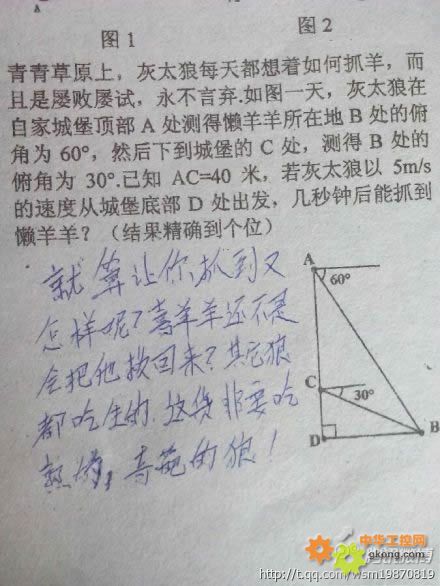 A
图 1
图 2
青青草原上，灰太狼每天都想着如何抓羊，而
且是屡败屡试，永不言弃.如图一天，灰太狼在
自家城堡顶部 A 处测得懒羊羊所在地 B 处的俯
角为 60°，然后下到城堡的 C 处，测得 B 处的
俯角为 30°.已知 AC=40 米，若灰太狼以 5m/s
的速度从城堡底部 D 处出发，几秒钟后能抓到
懒羊羊？（结果精确到个位）
就算让你抓到又
怎样呢？喜羊羊还不是
会把他救回来？其它狼
都吃生的，这货非要吃
熟的，奇葩的狼！
A
60°
C
30°
D
B
中华工控网
gkong.com
http://t.qq.com/wsm19870819